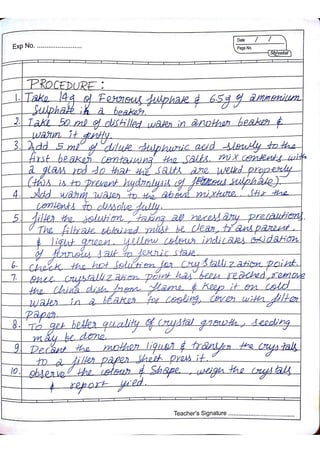 Exp No. ........................
Date / /
Page No.
PROCEDURE :
1. Take 14g of Ferrous sulphate & 6.5g of ammonium
Sulphate in a beaker.
2. Take 50 ml of distilled water in another beaker &
warm it gently.
3. Add 5 ml of dilute sulphuric acid slowly to the
first beaker containing the salts. mix contents with
a glass rod so that the salts are weted properly
(this is to prevent hydrolysis of ferrous sulphate)
4. Add warm water to the above mixture. Stir the
contents to dissolve fully.
5. filter the solution, taking all necessary precautions.
The filtrate obtained must be clear, transparent,
& light green. yellow colour indicates oxidation
of ferrous salt to ferric state.
6. Check the hot solution for crystallization point.
7. Once crystallization point has been reached, remove
the China dish from flame, & keep it on cold
water in a beaker for cooling, cover with filter
Paper.
8. To get better quality of crystal growth, seeding
may be done.
9. Decant the mother liquor & transfer the crystals
to a filter paper sheet press it.
10. Observe the colour & Shape, weigh the crystals
& report yied.
Teacher's Signature ........................